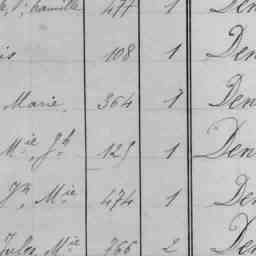 477 1 Den
108 1 Den
Marie, 364 1 Den
Mie, Jh 125 1 Den
Jh, Mie 474 1 Den
Jules, Mie 766 2 Den